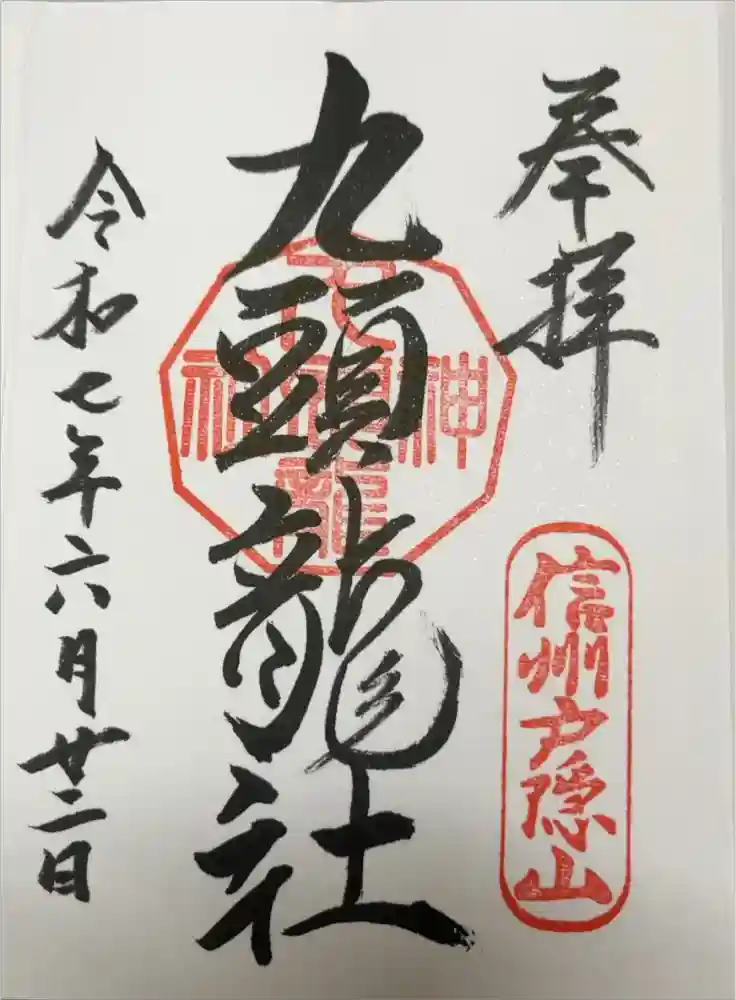 奉拝
信州戸隠山
九頭龍社
九頭龍
神
社
令和七年六月廿二日